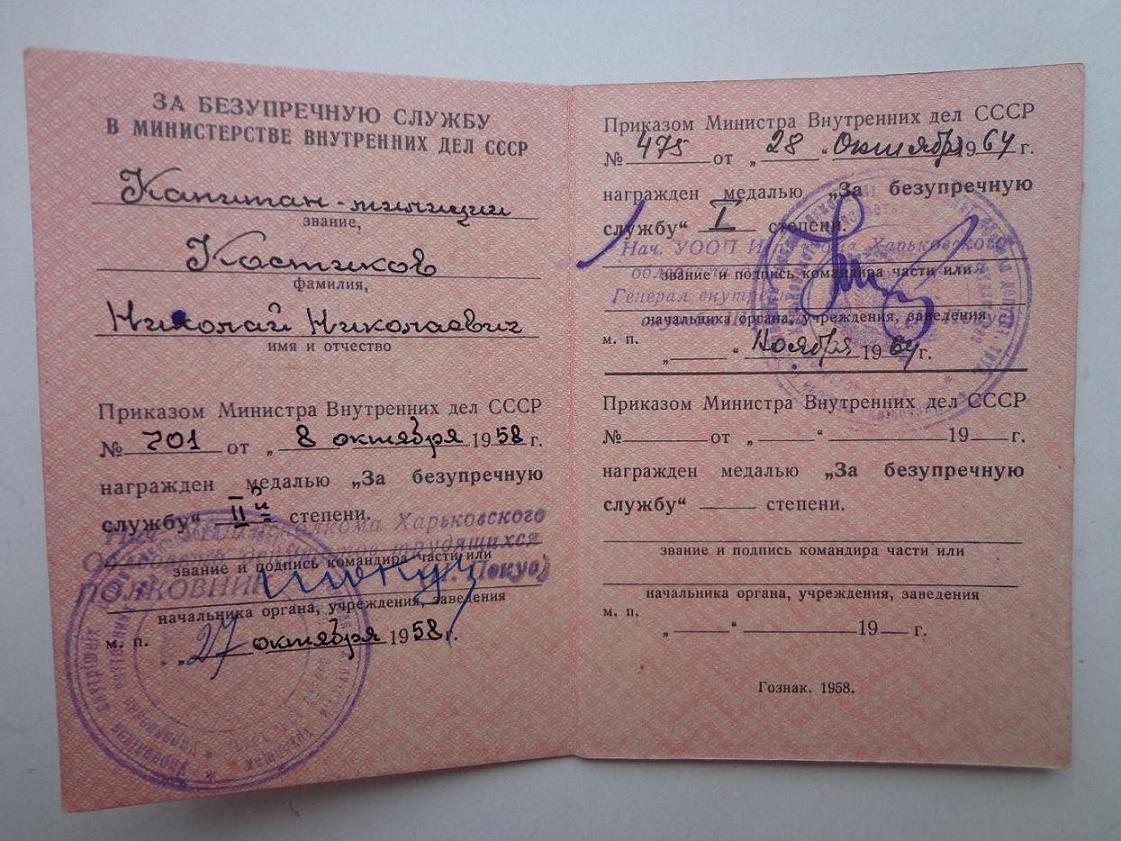 ЗА БЕЗУПРЕЧНУЮ СЛУЖБУ
В МИНИСТЕРСТВЕ ВНУТРЕННИХ ДЕЛ СССР
Капитан-милиции
звание,
Костиков
фамилия,
Николай Николаевич
имя и отчество
Приказом Министра Внутренних дел СССР
№ 701 от „ 8 октября 1958 г.
награжден медалью „За безупречную
службу“ II й степени.
Харьковского
трудящихся
звание и подпись командира части или
ПОЛКОВНИК
начальника органа, учреждения, заведения
м. п.
„27 октября 1958 г.
Приказом Министра Внутренних дел СССР
№ 475 от „ 28 “ Октября 1964 г.
награжден медалью „За безупречную
службу“ I степени.
Нач. УООП Харьковского
звание и подпись командира части или
Генерал внутр
начальника органа, учреждения, заведения
м. п.
„ “ Ноября 1964 г.
Приказом Министра Внутренних дел СССР
№ от „ “ 19 г.
награжден медалью „За безупречную
службу“ степени.
звание и подпись командира части или
начальника органа, учреждения, заведения
м. п.
„ “ 19 г.
Гознак. 1958.